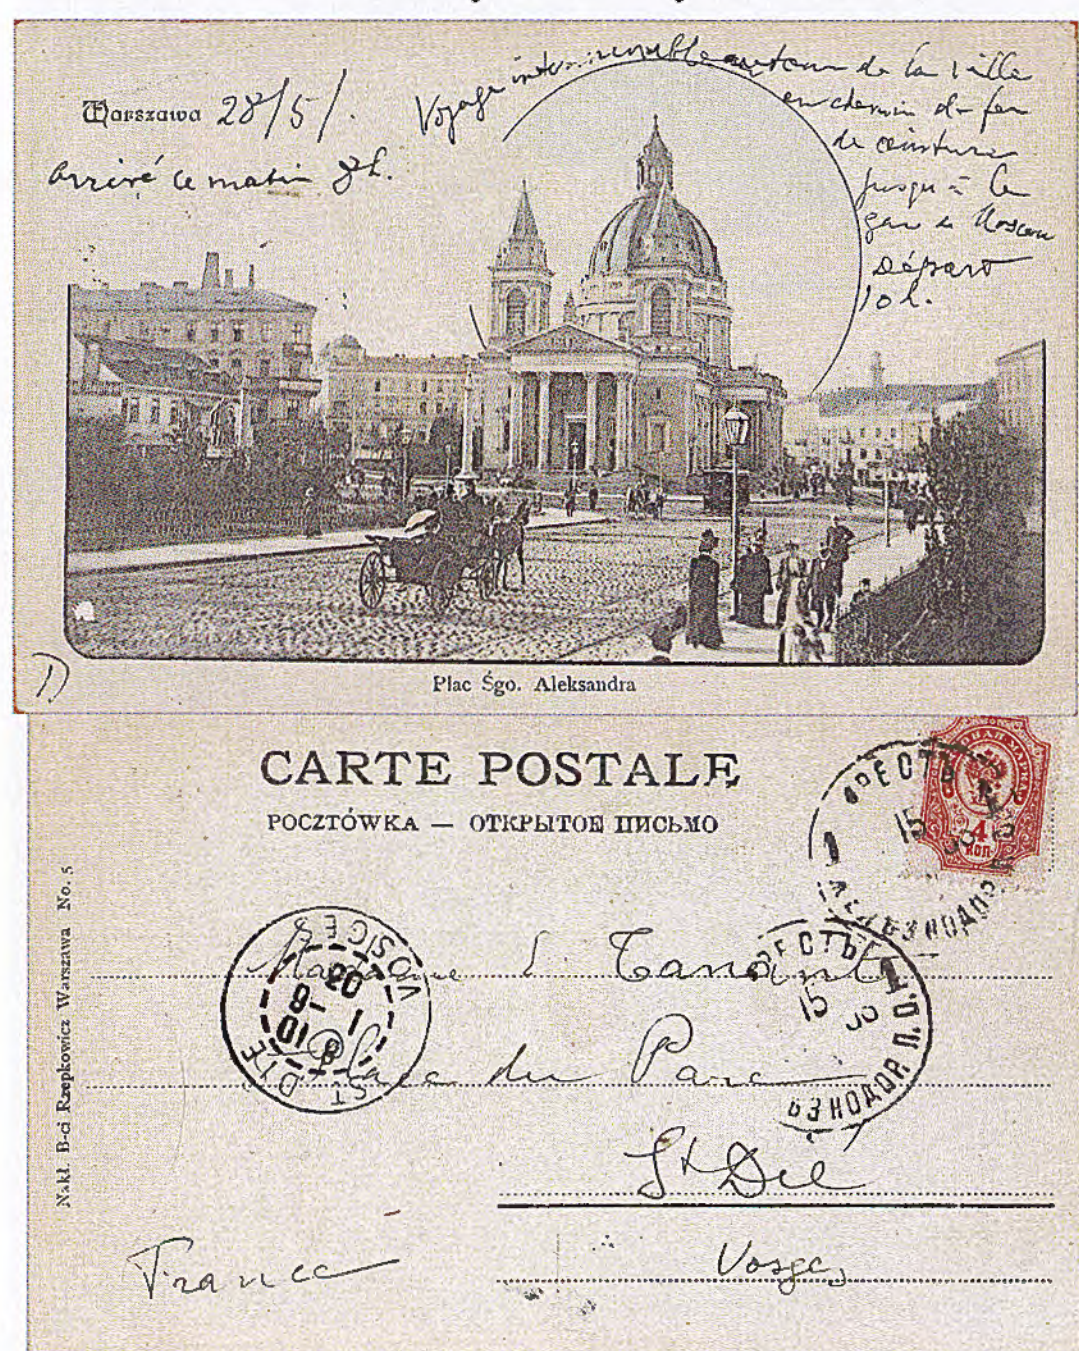 Warszawa 28/5/.
Arrivé ce matin 8h.
Voyage interminable autour de la ville
en chemin de fer
de ceinture
jusqu'à la
gare de Moscou
Départ
10h.
1)
Plac Śgo. Aleksandra
CARTE POSTALE
POCZTÓWKA — ОТКРЫТОЕ ПИСЬМО
Nakł. B-ci Rzepkowicz Warszawa No. 5
4
КОП.
БРЕСТЪ
15
БРЕСТЪ
15
ST. DIÉ
VOSGES
Madame
Place du Parc
St Dié
Vosges
France